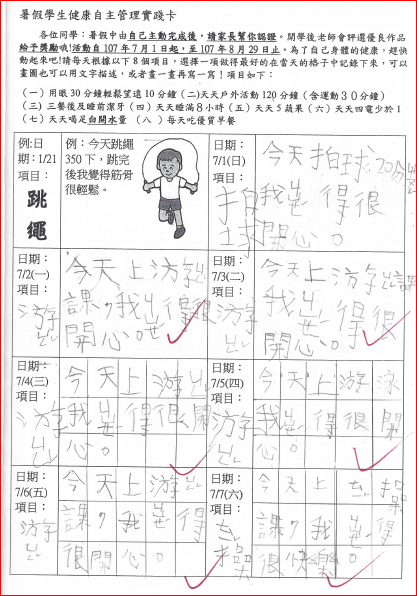 暑假學生健康自主管理實踐卡
各位同學:暑假中由自己主動完成後,請家長幫你認證。開學後老師會評選優良作品
給予獎勵哦!活動自 107 年 7 月 1 日起,至 107 年 8 月 29 日止。為了自己身體的健康,趕快
動起來吧!請每天根據以下 8 個項目,選擇一項做得最好的在當天的格子中記錄下來,可以
畫圖也可以用文字描述,或者畫一畫再寫一寫!項目如下:
(一)用眼 30 分鐘輕鬆望遠 10 分鐘(二)天天戶外活動 120 分鐘(含運動30分鐘)
(三)三餐後及睡前潔牙(四)天天睡滿 8 小時(五)天天 5 蔬果(六)天天四電少於 1
(七)天天喝足白開水量(八)每天吃優質早餐
例:日
期:1/21
項目:
跳
繩
例:今天跳繩
350 下,跳完
後我覺得筋骨
很輕鬆。
日期:
7/1(日)
項目:
拍
球
今天拍球20分ㄓㄨㄥ
我ㄐㄩㄝ得很
開心。
日期:
7/2(一)
項目:
游ㄩㄥ
今天上游ㄩㄥ
課,我ㄐㄩㄝ得很
開心
日期:
7/3(二)
項目:
游ㄩㄥ
今天上游ㄩㄥ課
我ㄐㄩㄝ得很
開心。
日期:
7/4(三)
項目:
游ㄩㄥ
今天上游ㄩㄥ
我ㄐㄩㄝ得很開
心。
日期:
7/5(四)
項目:
游ㄩㄥ
今天上游泳
我ㄐㄩㄝ得很開
心。
日期:
7/6(五)
項目:
游ㄩㄥ
今天上游ㄩㄥ
課,我ㄐㄩㄝ得
很開心。
日期:
7/7(六)
項目:
今天上
課,我ㄐㄩㄝ得
很快樂。